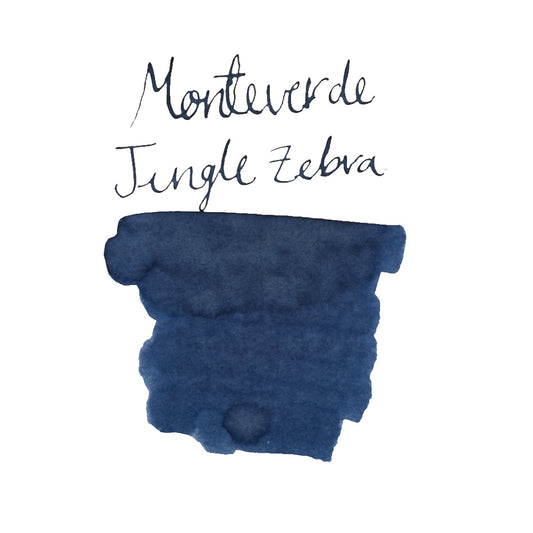 Monteverde
Jungle Zebra